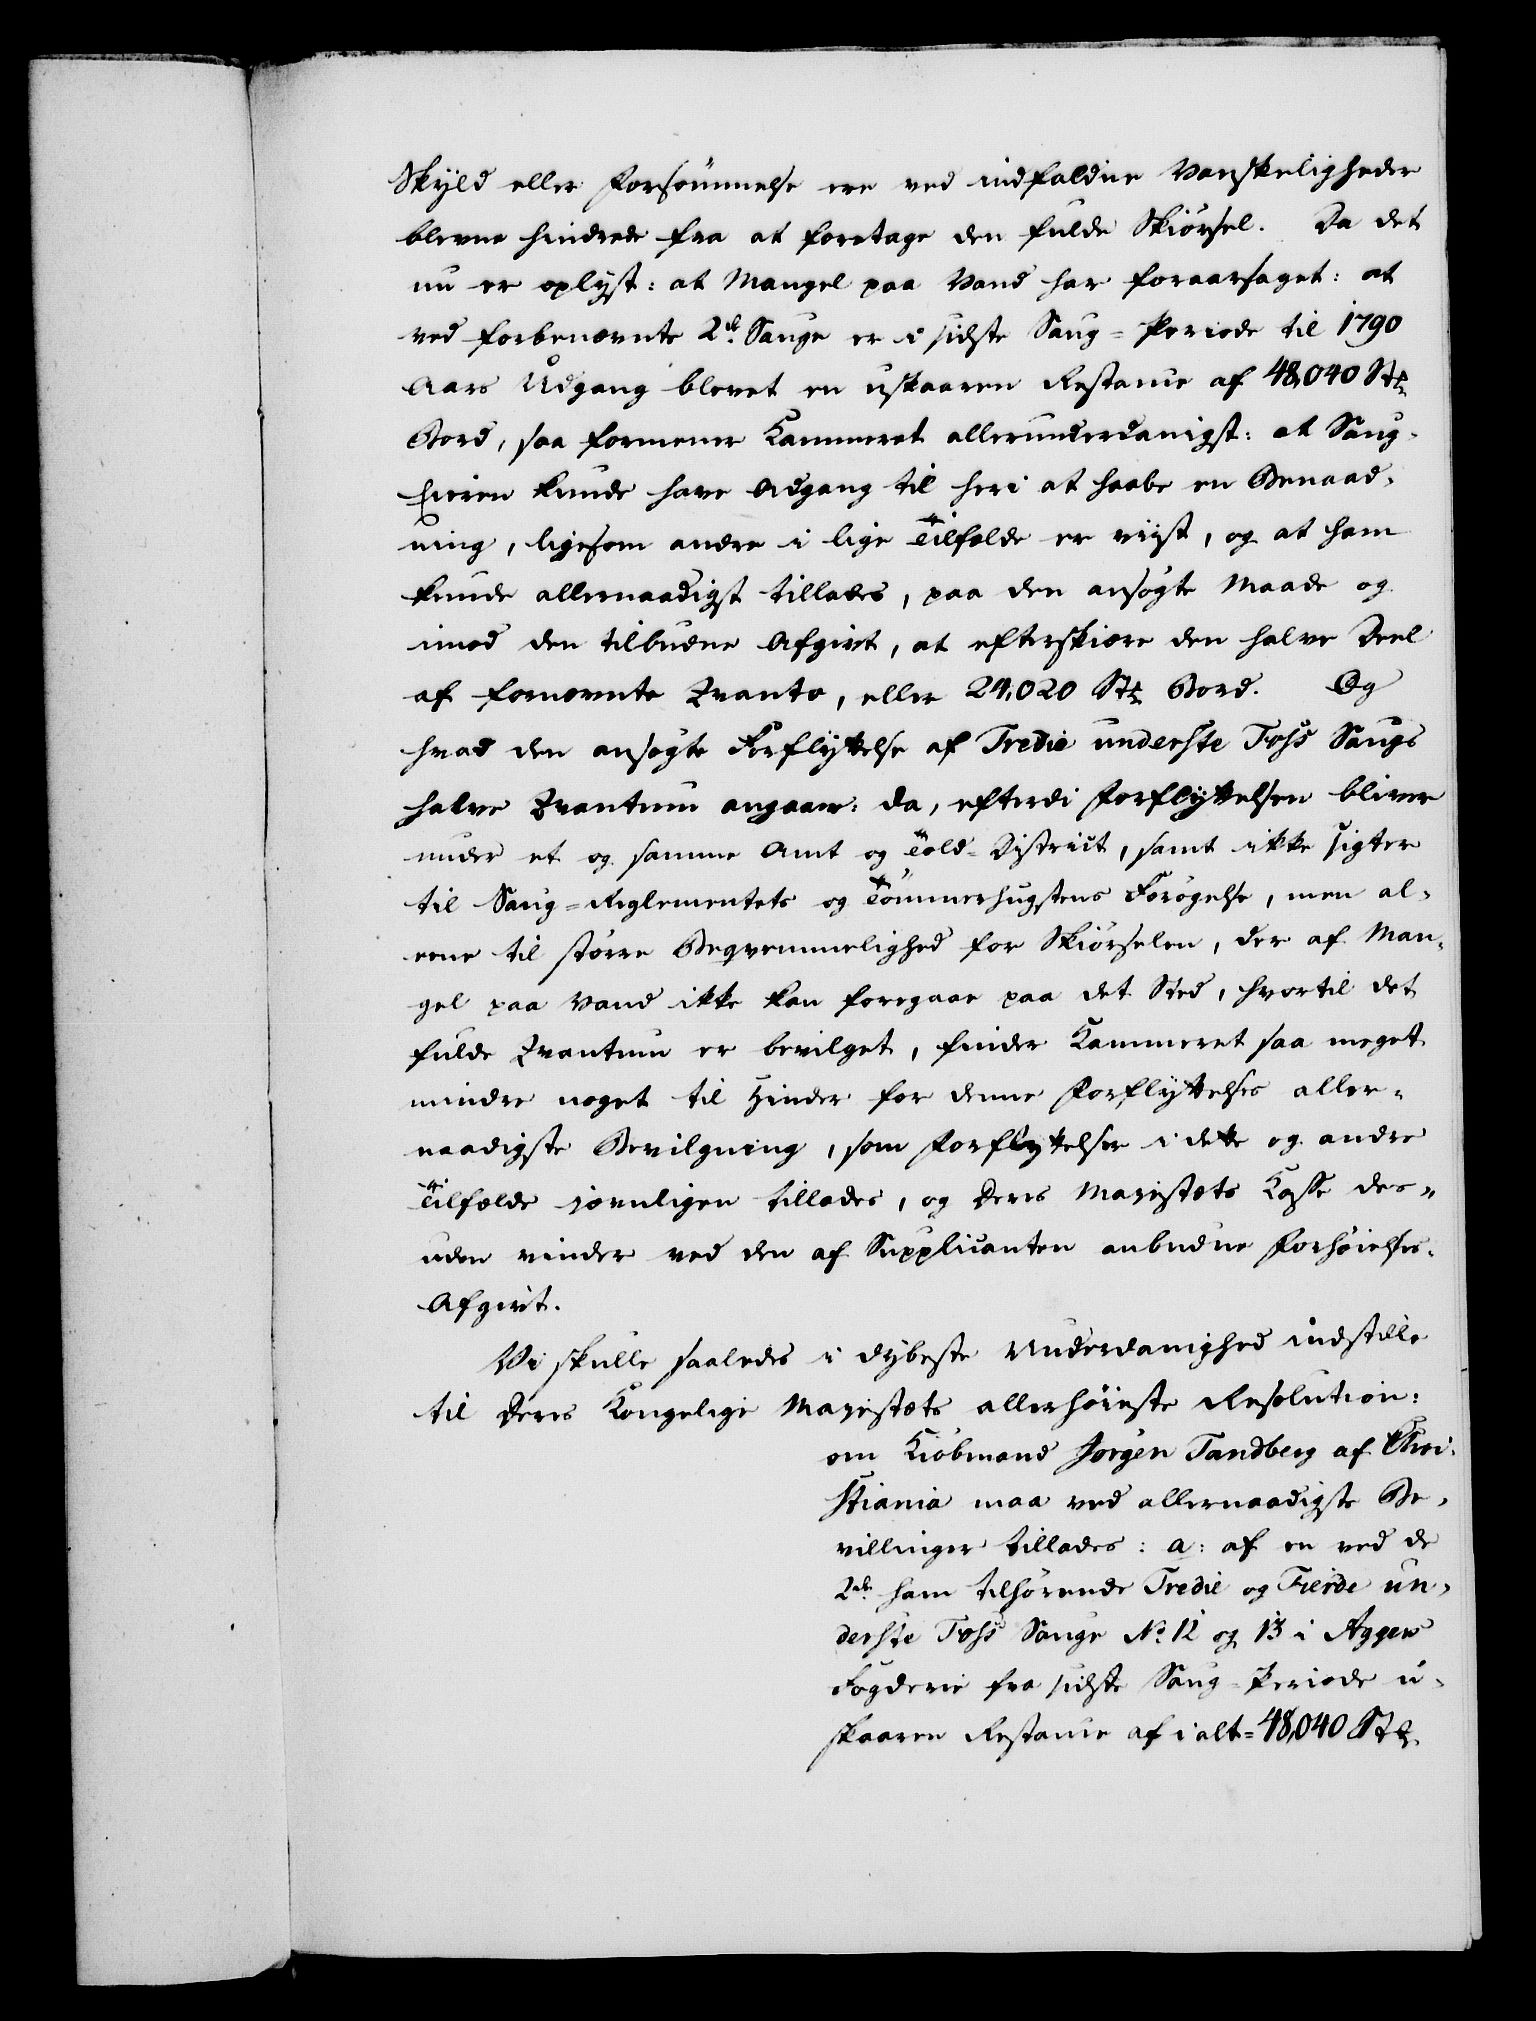 Skyld eller Forsömmelse ere ved indfaldne Vanskeligheder
blevne hindrede fra at foretage den fulde Skiörsel. Da det
nu er oplyst: at Mangel paa Vand har foraarsaget: at
ved forbenævnte 2de Sauge er i sidste Saug-Periode til 1790
Aars Udgang blevet en uskaaren Restance af 48,040 Stk
Bord, saa formener Kammeret allerunderdanigst: at Saug-
Eieren kunde have Adgang til heri at haabe en Benaad-
ning, ligesom andre i lige Tilfælde er viist, og at ham
kunde allernaadigst tillades, paa den ansögte Maade og
imod den tilbudne Afgivt, at efterskiære den halve Deel
af fornævnte Qvanto, eller 24,020 Stk Bord. Og
hvad den ansögte Forflyttelse af Tredie underste Foss Saugs
halve Qvantum angaaer: da, efterdi Forflyttelsen bliver
under et og samme Amt og Told-District, samt ikke sigter
til Saug-Reglementets og Tömmerhugstens Forögelse, men al-
eene til större Beqvemmelighed for Skiörselen, der af Man-
gel paa Vand ikke kan foregaae paa det Sted, hvortil det
fulde Qvantum er bevilget, finder Kammeret saa meget
mindre noget til Hinder for denne Forflyttelses aller-
naadigste Bevilgning, som Forflyttelser i dette og andre
Tilfælde jævnligen tillades, og Deres Majestæts Kasse des-
uden vinder ved den af Supplicanten anbudne Forhöielses-
Afgivt.
Vi skulle saaledes i dybeste Underdanighed indstille
til Deres Kongelige Majestæts allerhöieste Resolution:
om Kiöbmand Jörgen Tandberg af Chri-
stiania maa ved allernaadigste Be-
villinger tillades: a: af en ved de
2de ham tilhörende Tredie og Fierde un-
derste Foss Sauge No 12 og 13 i Aggers
Fogderie fra sidste Saug-Periode u-
skaaren Restance af ialt=48,040 Stk